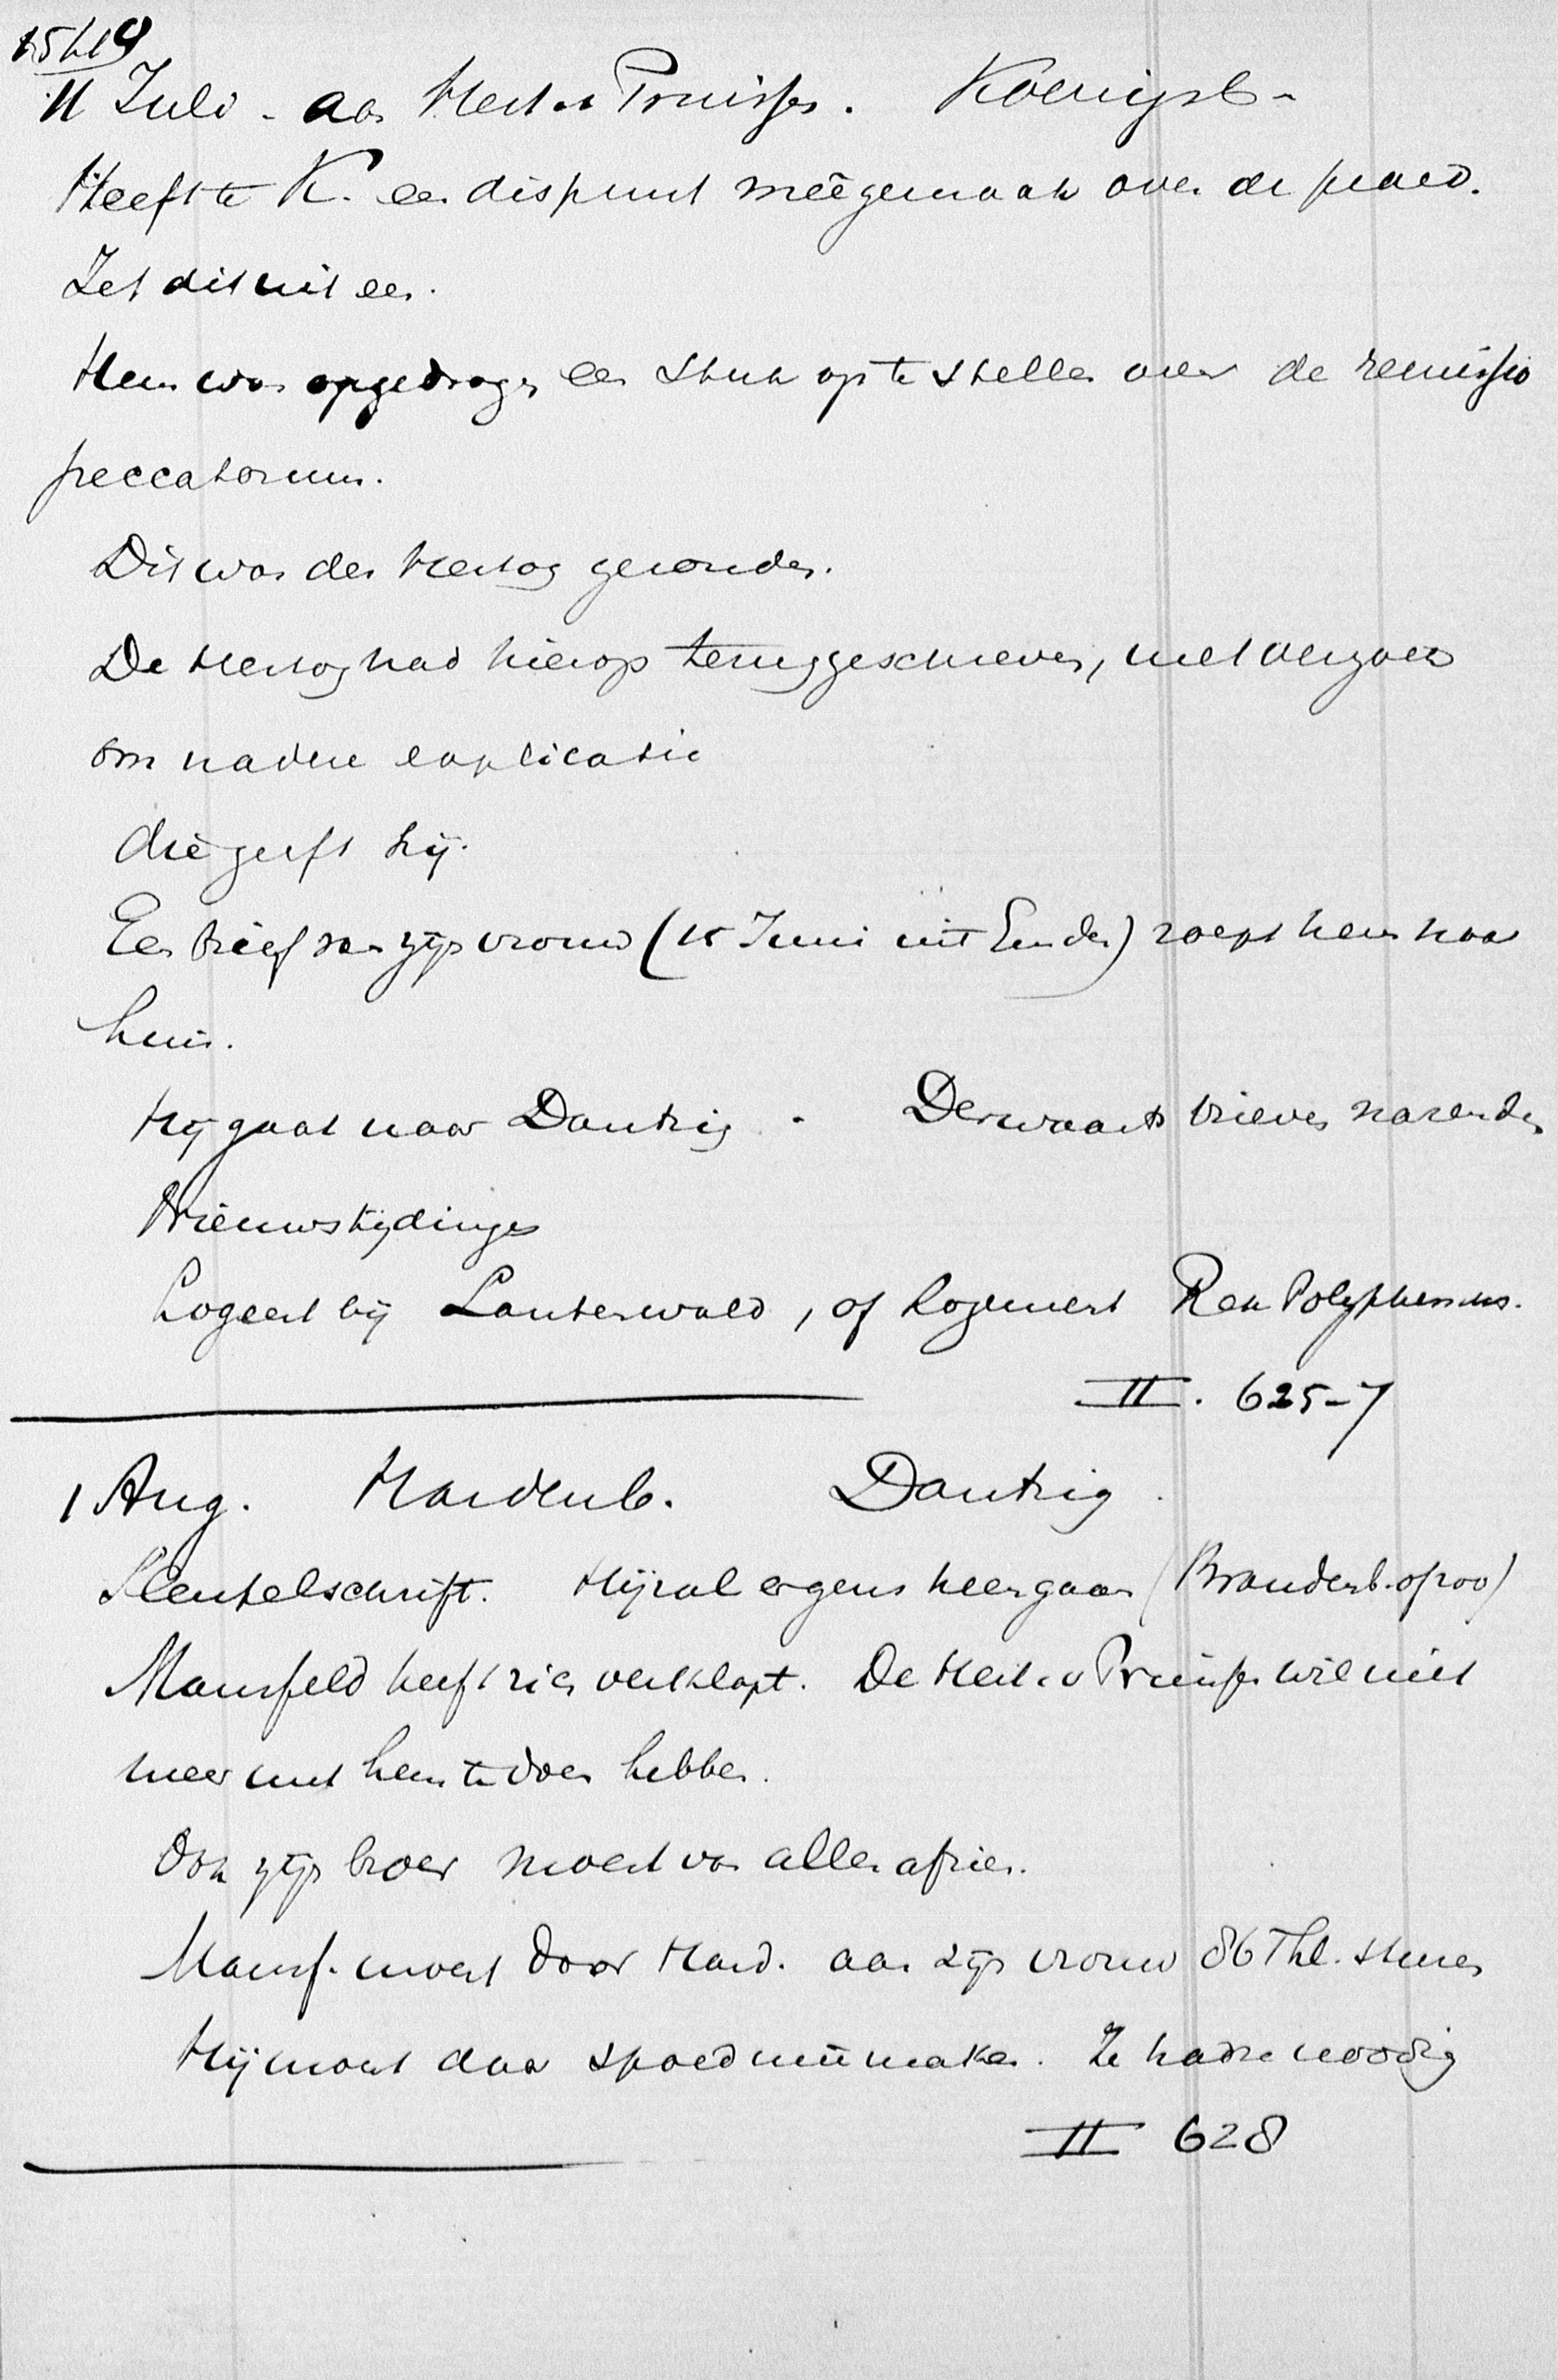 1549
11 Juli - aan Hert. v. Pruissen. Koenigsb -
Heeft te K. een dispuut meêgemaakt over de praed.
Zet dit uit een.
Hem was opgedragen een stuk op te stellen over de remissio
peccatorum.
Dit was den Hertog gezonden.
De Hertog had hierop teruggeschreven, met verzoek
om nadere explicatie
die geeft hij.
Een brief van zijn vrouw (15 Juni uit Emden) roept hem naar
huis.
Hij gaat naar Dantzig. Derwaarts brieven nazenden
Nieuwstijdingen
Logeert bij Lauterwald, of logement Rek Polyphemus.
II. 625-7
1 Aug. Hardenb. Dantzig.
Sleutelschrift. Hij zal ergens heengaan (Brandenb. of zoo)
Mansfeld heeft zich verklapt. De Hert. v Pruissen wil niet
meer met hem te doen hebben.
Ook zijn broer moet van alles afzien.
Mansf. moet door Hard. aan zijn vrouw 86 Thl. sturen
Hij moet daar spoed mee maken. Ze had ze noodig
II 628